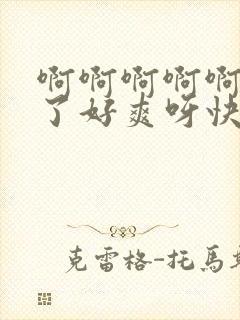 啊啊啊啊啊
了好爽呀快
克雷格-托馬